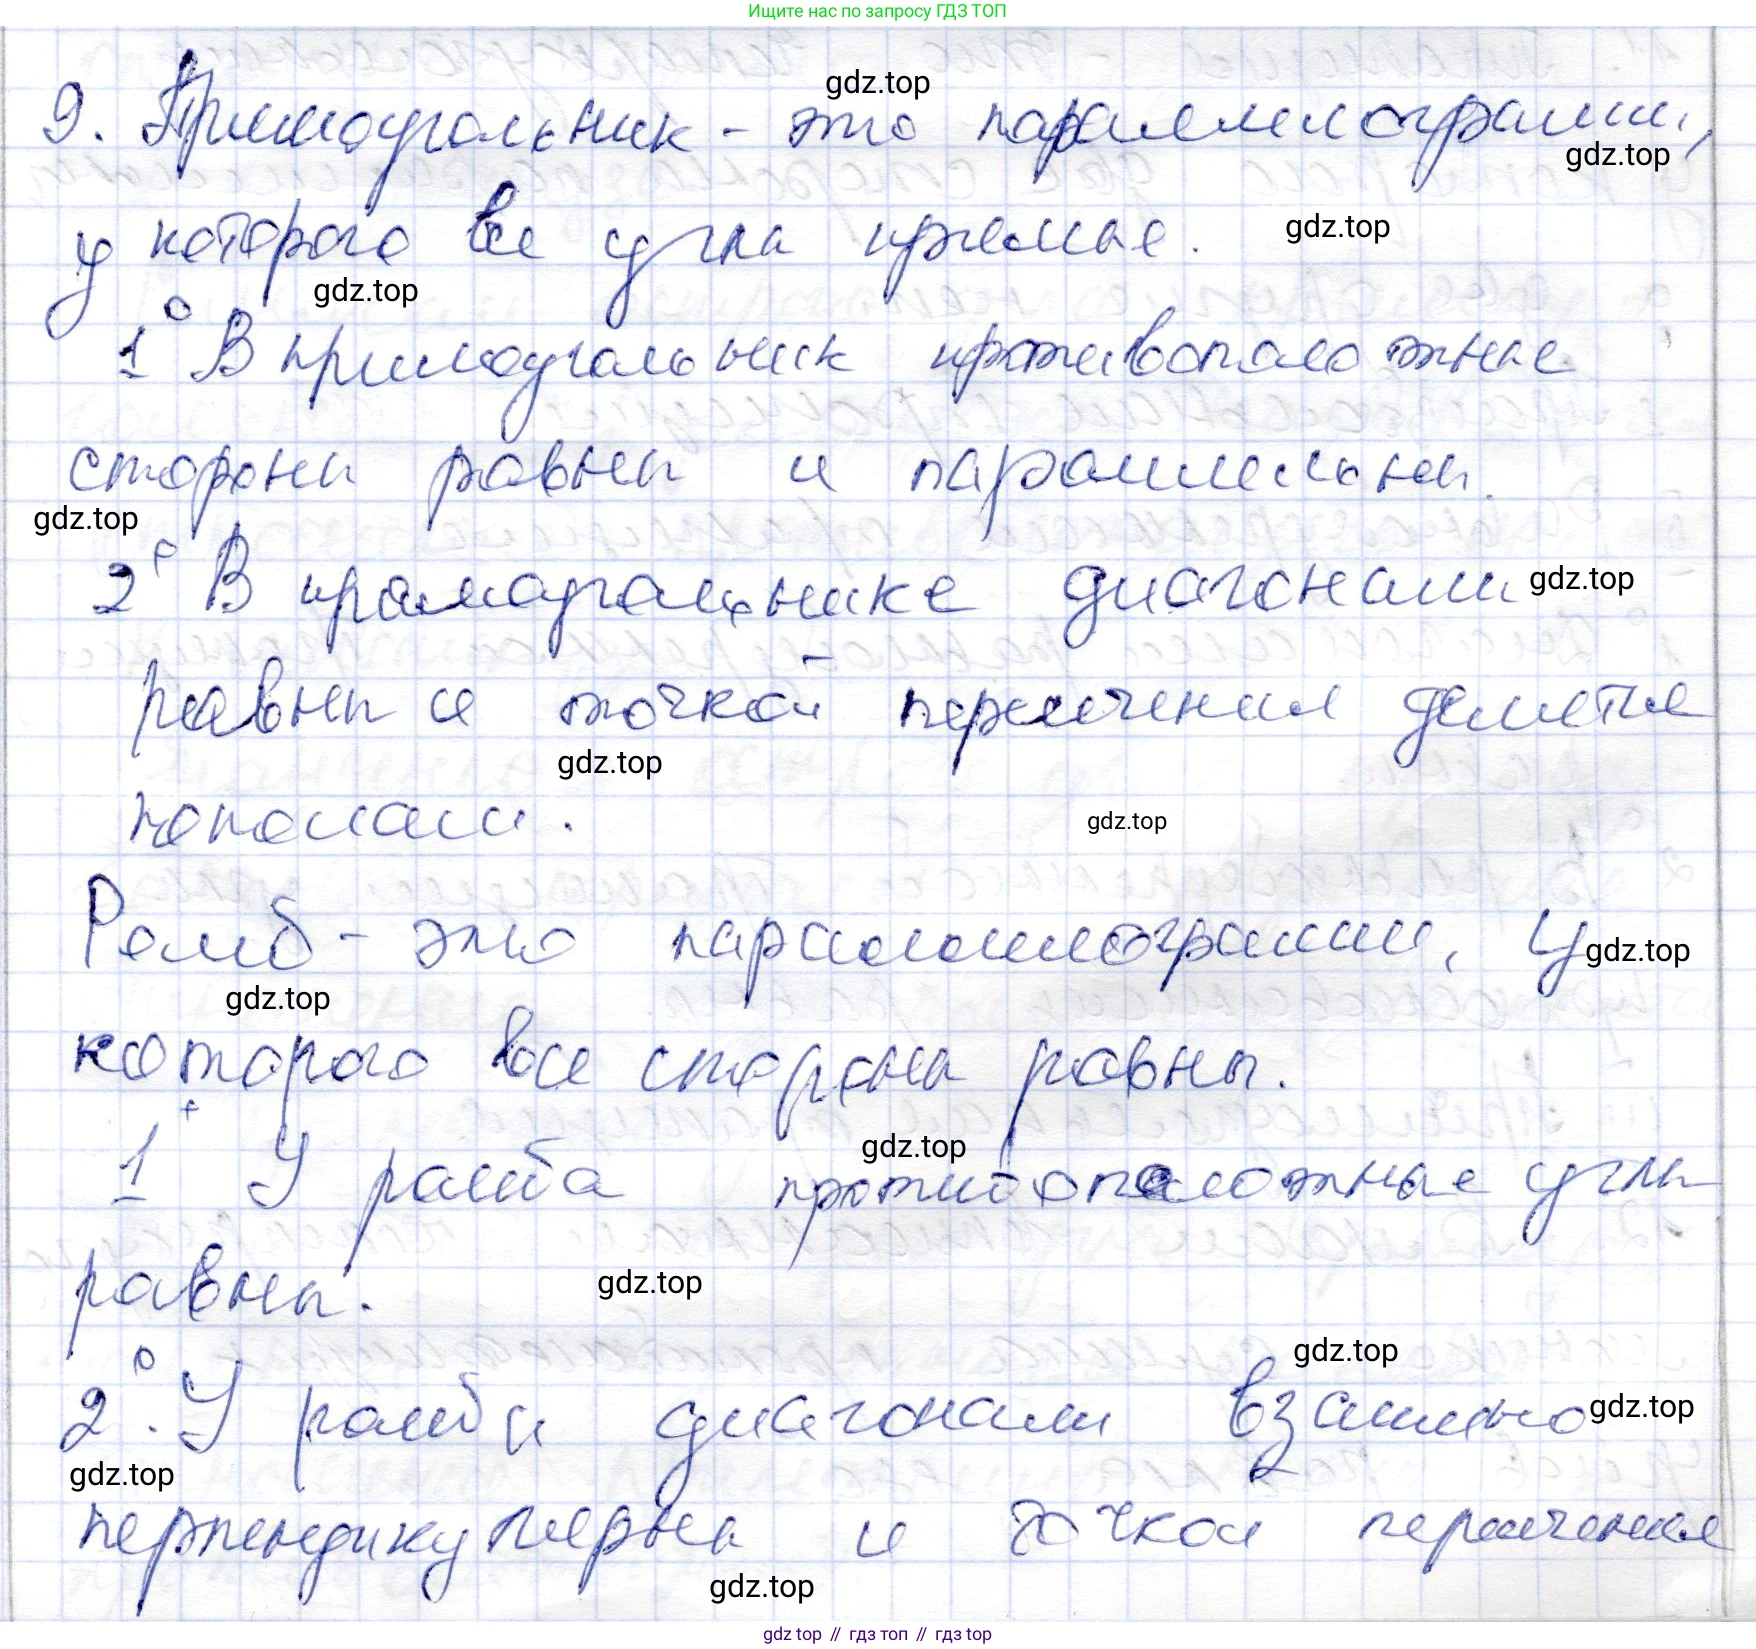 Ищите нас по запросу ГДЗ ТОП
gdz.top
9. Прямоугольник - это параллелограмм,
gdz.top
у которого все углы прямые. gdz.top
gdz.top
1° В прямоугольник противоположные
стороны равны и параллельны.
gdz.top
2° В прямоугольнике диагонали gdz.top
равны и точкой пересечения делятся
gdz.top
пополам. gdz.top
Ромб - это параллелограмм, у gdz.top
gdz.top
которого все стороны равны.
gdz.top
1° У ромба противоположные углы
равны. gdz.top
gdz.top
2°. У ромба диагонали взаимно gdz.top
gdz.top
перпендикулярны и точкой пересечения
gdz.top
gdz top // гдз топ // гдз top